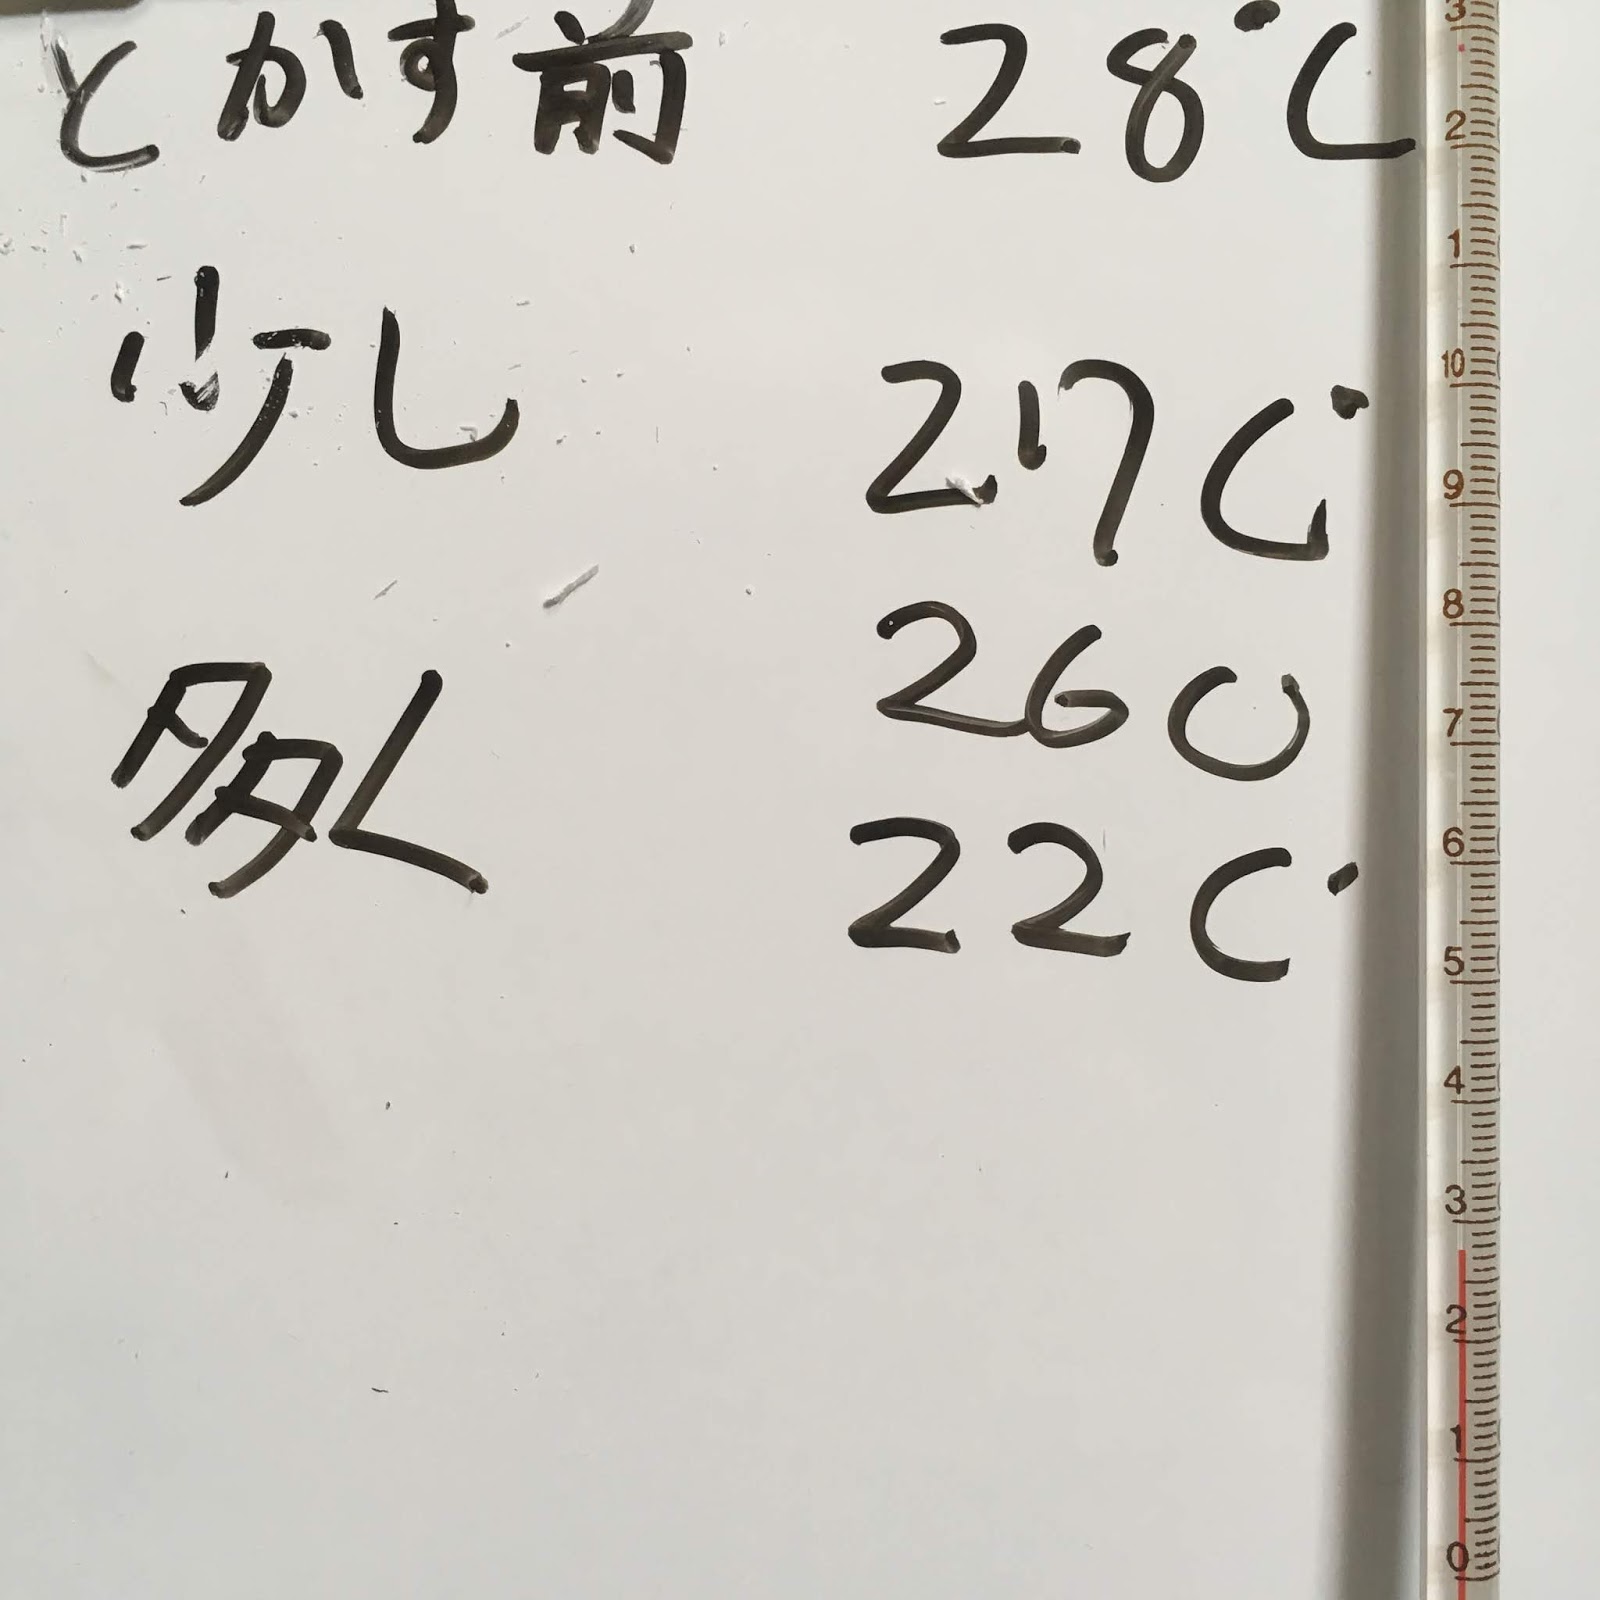 とかす前 28°C
少し 27C°
260
多く 22C°
3
2
1
10
9
8
7
6
5
4
3
2
1
0